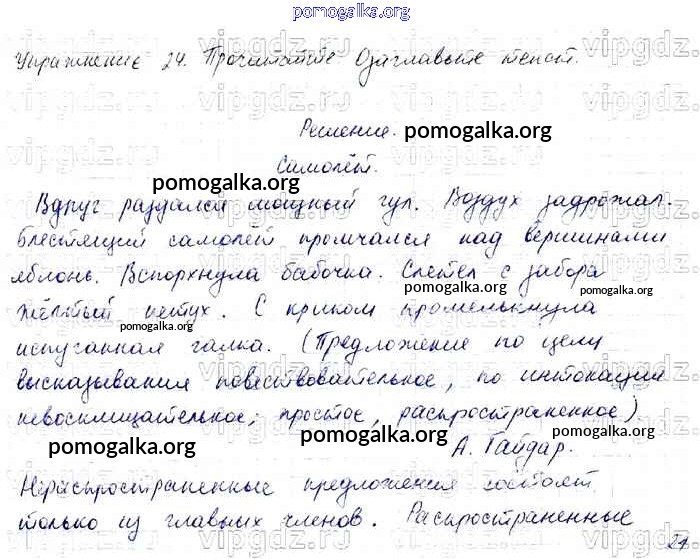 pomogalka.org
Упражнение 24. Прочитайте Озаглавьте текст.
Решение.
pomogalka.org
Самолёт.
pomogalka.org
Вдруг раздался мощный гул. Воздух задрожал.
Блестящий самолёт промчался над вершинами
яблонь. Вспорхнула бабочка. Слетел с забора
pomogalka.org
жёлтый петух. С криком промелькнула
pomogalka.org
испуганная галка. (Предложение по цели
pomogalka.org
высказывания повествовательное, по интонации
невосклицательное, простое, распространенное)
pomogalka.org
pomogalka.org
pomogalka.org
А. Гайдар.
Нераспространенные предложения состоят
только из главных членов. Распространенные
24
vipgdz.ru